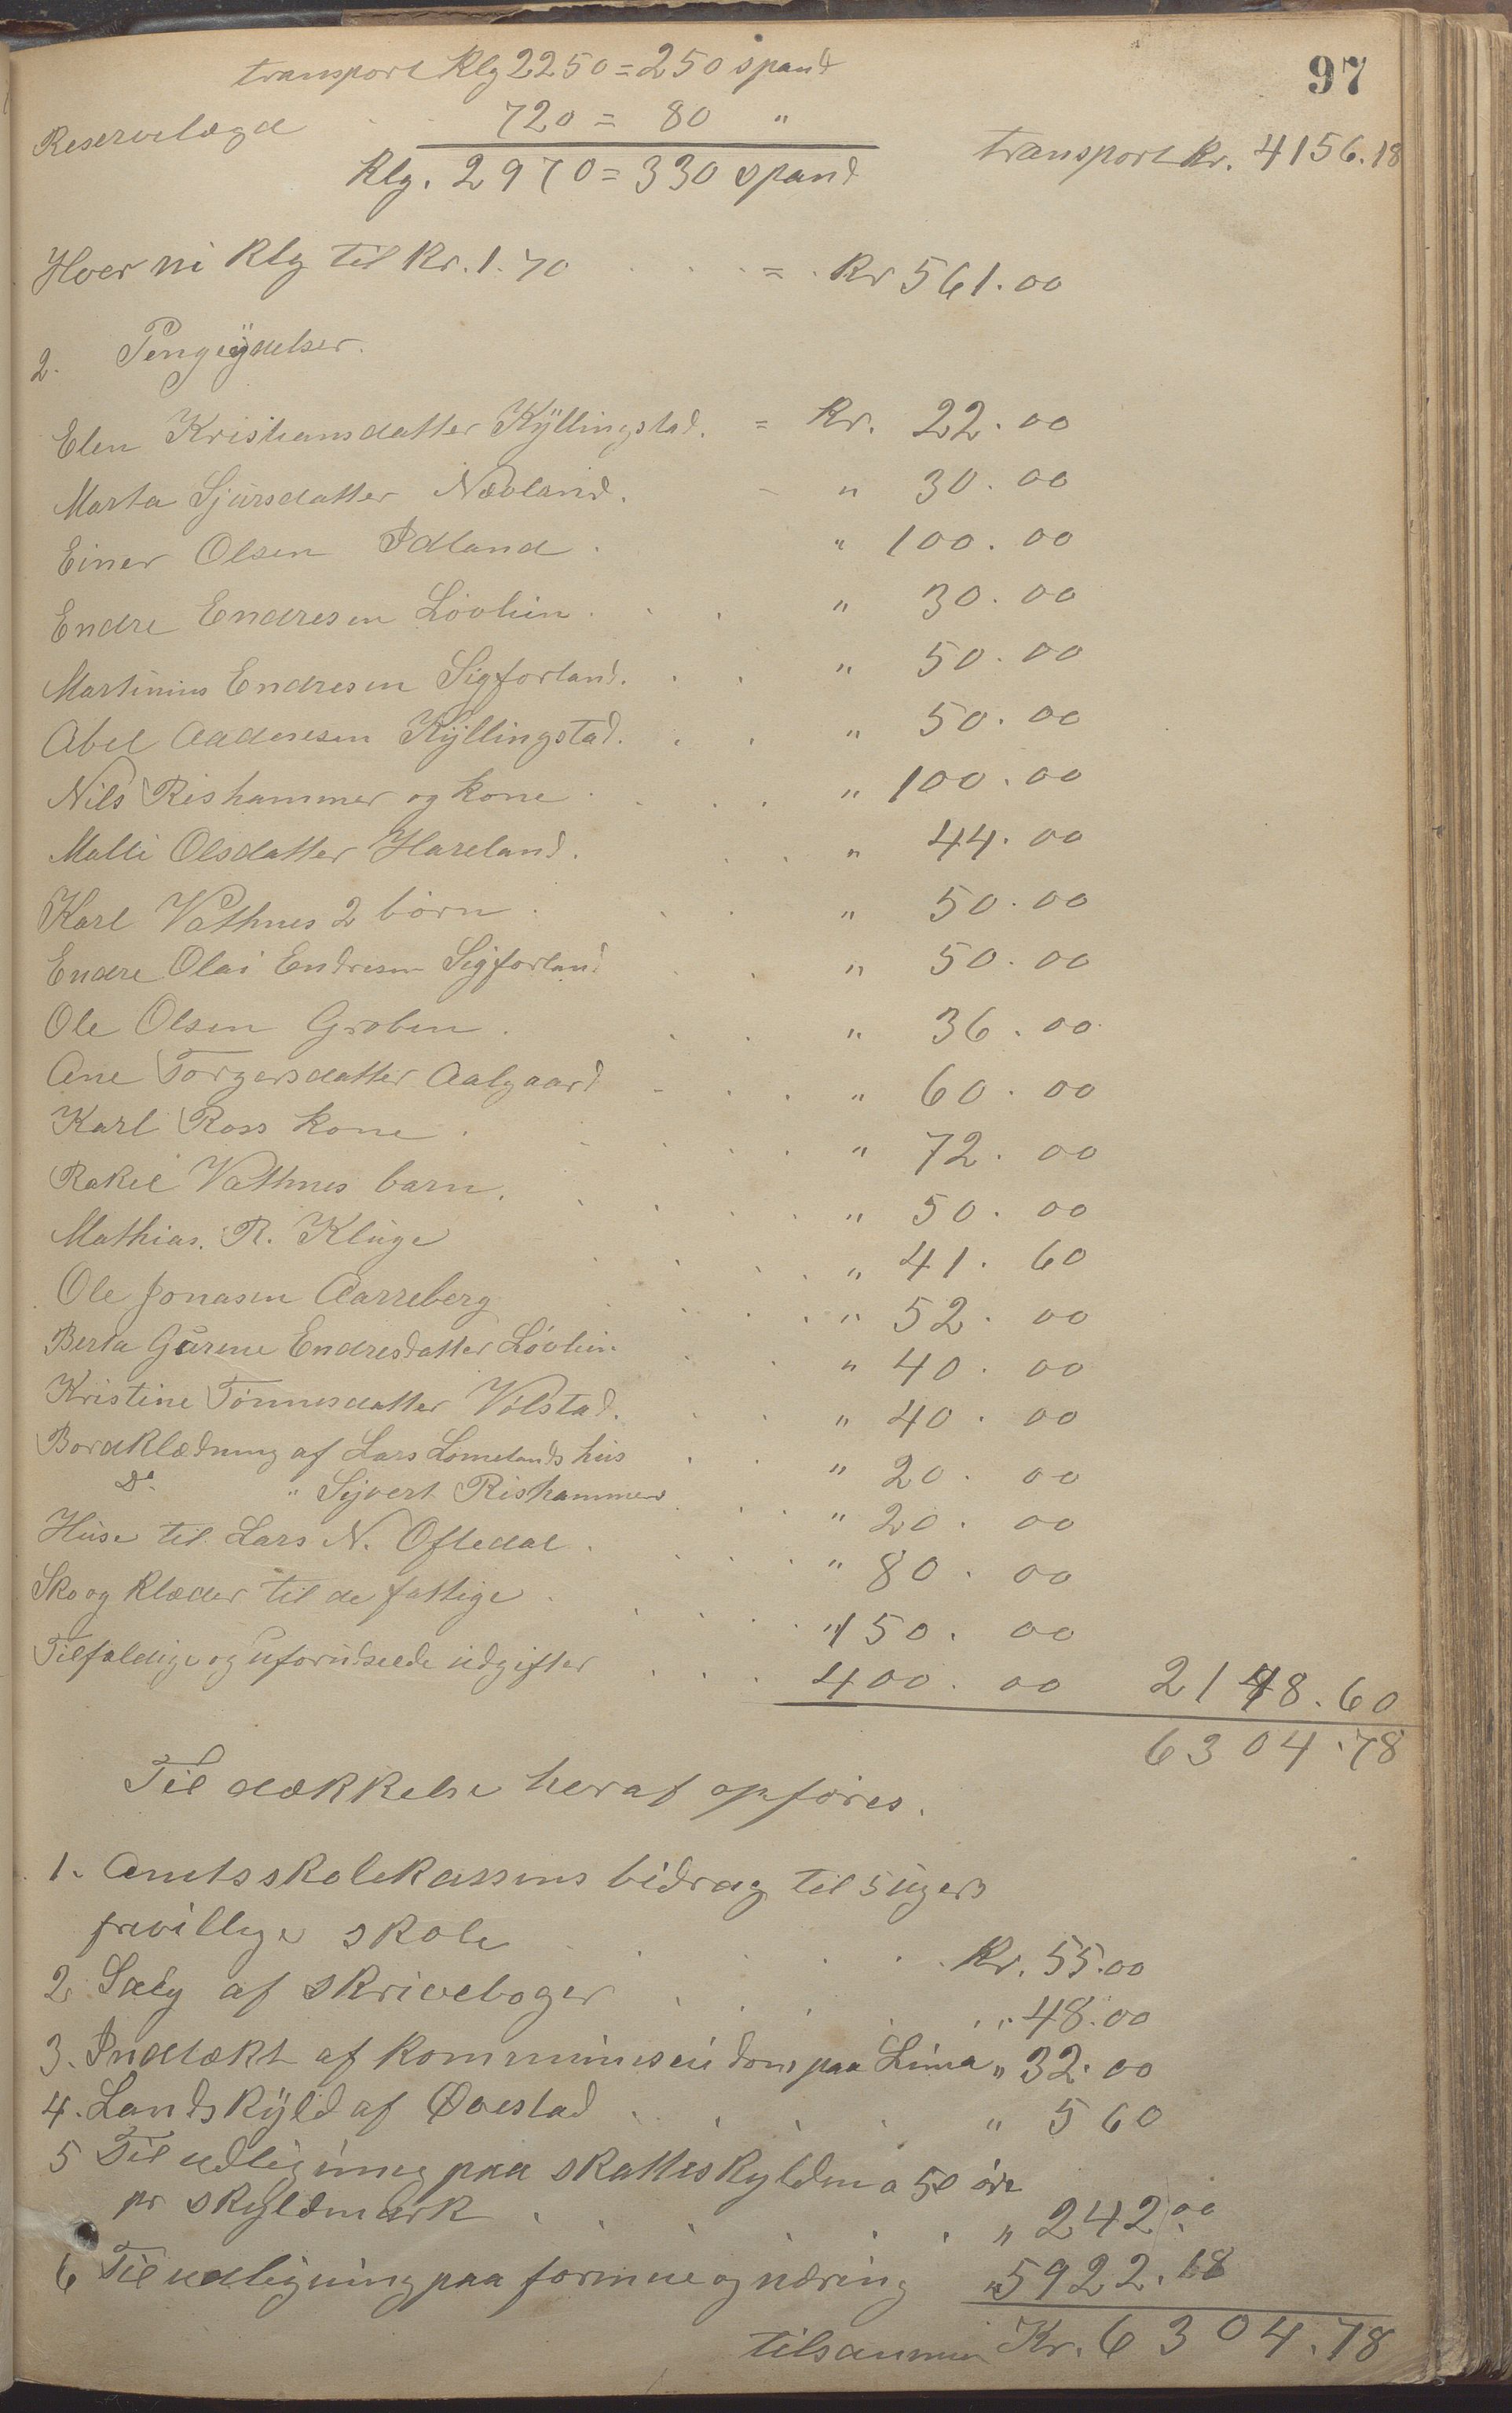 97
transport Klg 2250 = 250 spand
Reservelægd . . 720 = 80 "
transport Kr. 4156.18
Klg. 2970 = 330 spand
Hver ni Klg til Kr. 1.70 . . . = . Kr 561.00
2. Pengeÿdelser.
Elen Kristiansdatter Kÿllingstad. = Kr. 22.00
Marta Sjursdatter Nævland. - " 30.00
Einer Olsen Idland . " 100.00
Endre Endresen Lövlien . . . " 30.00
Martinius Endresen Sigforland. . . " 50.00
Abel Aadnesen Kÿllingstad. . . " 50.00
Nils Rishammer og kone . . . . " 100.00
Malli Olsdatter Hareland. . . " 44.00
Karl Vathnes 2 börn . . . " 50.00
Endre Olai Endresen Sigforland . . " 50.00
Ole Olsen Groben . . . " 36.00
Ane Torgersdatter Aalgaard - . . " 60.00
Karl Ross kone . . . . . " 72.00
Rakel Vathnes barn. . . . . " 50.00
Mathias. R. Kluge . . . . " 41.60
Ole Jonasen Aarreberg . . . . " 52.00
Berta Gurine Endresdatter Lövlien . . " 40.00
Kristine Tönnesdatter Völstad. . . " 40.00
Bordklædning af Lars Lomelands hus . . " 20.00
Do. " Sijvert Rishammers . . . " 20.00
Huse til Lars N. Oftedal . . . . " 80.00
Sko og Klæder til de fattige . . . . " 150.00
Tilfældige og uforudseede udgifter . . . 400.00 2148.60
6304.78
Til dækkelse heraf opföres.
1. Amtsskolekassens bidrag til 5 ugers
frivillige skole . . . . . Kr. 55.00
2. Salg af skriveboger . . . . . " 48.00
3. Indtækt af kommuneseiendom paa Lima " 32.00
4. Landskÿld af Øvestad . . . . " 5 60
5 Til udligning paa skatteskylden a 50 öre
pr skyldmark . . . . . . " 242.00
6 Til udligning paa formue og næring " 5922.18
tilsammen Kr. 6304.78